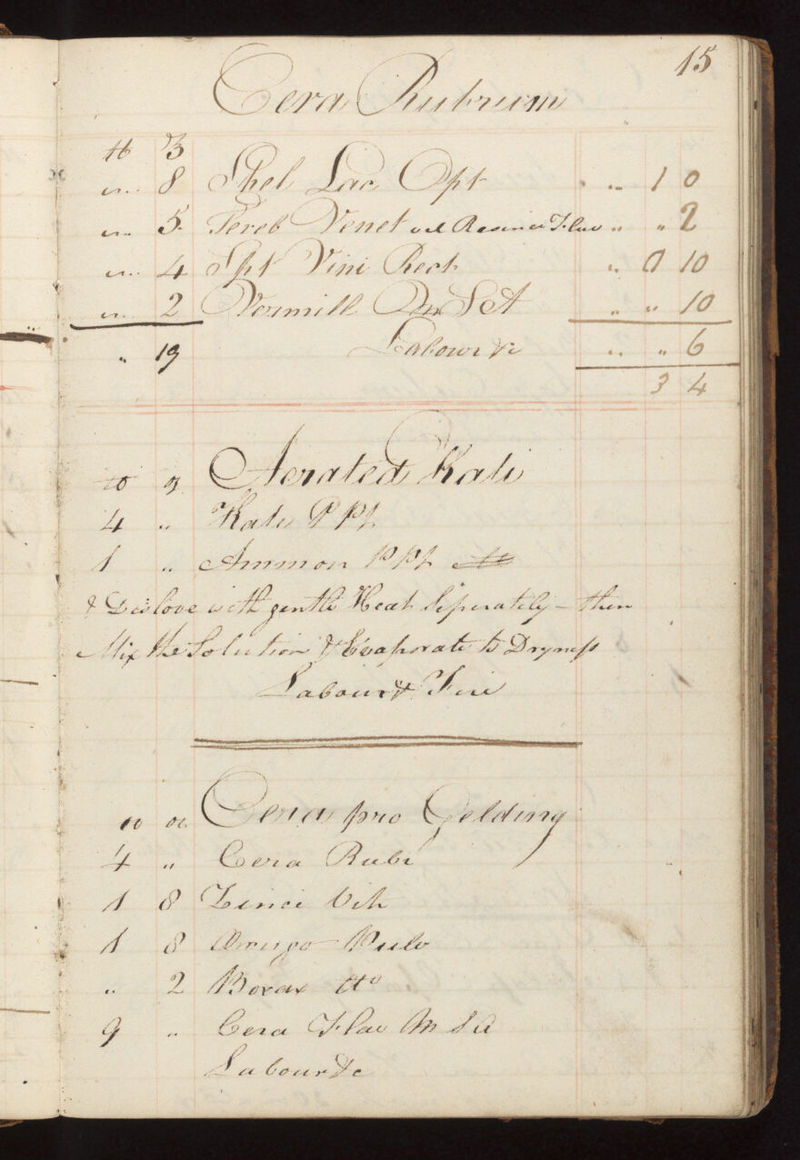 15
Cera Rubrum
℔ ℥
" 8 Shel Lac Opt " 1 0
" 5 Tereb Venet vel Resince Flav " " 2
" 4 Spt Vini Rect " 0 10
" 2 Vermill SA " " 10
" 19 Labour &c " " 6
3 4
Aerated Kali
4 " Kali P Pt
1 " Ammon P Pt
& Dislove with gentle Heat Seperately – then
Mix the Solution & Evaporate to Dryness
Labour & Fire
Cera pro Gelding
4 " Cera Rubi
1 8 Zinci Vit
1 8 Aerugo Pulv
" 2 Borax tto
9 " Cera Flav M S A
Labour &c